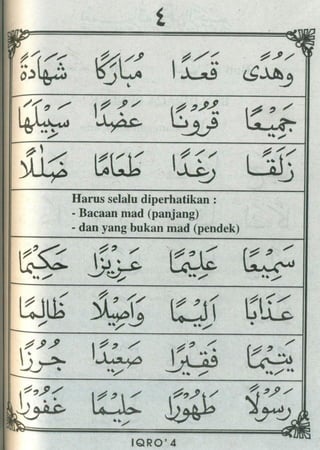 ٤
وَهُدًى قَعَدًا مُبَارَكًا شَهَادَةً
جَمِيْعًا قُرُوْنًا عَضُدًا سَبِيْلَهَا
زَلَقًا رَغَدًا طَعَامًا ضَلٰلًا
Harus selalu diperhatikan :
- Bacaan mad (panjang)
- dan yang bukan mad (pendek)
سَمِيْعًا عَلِيْمًا عَزِيْزًا حَكِيْمًا
عَذَابًا اَلِيْمًا وَاَصِيْلًا ظَالِمًا
يَتِيْمًا فَقِيْرًا صَعِيْدًا جُرُزًا
رَسُوْلًا طَهُوْرًا حَلِيْمًا غَفُوْرًا
IQRO' 4